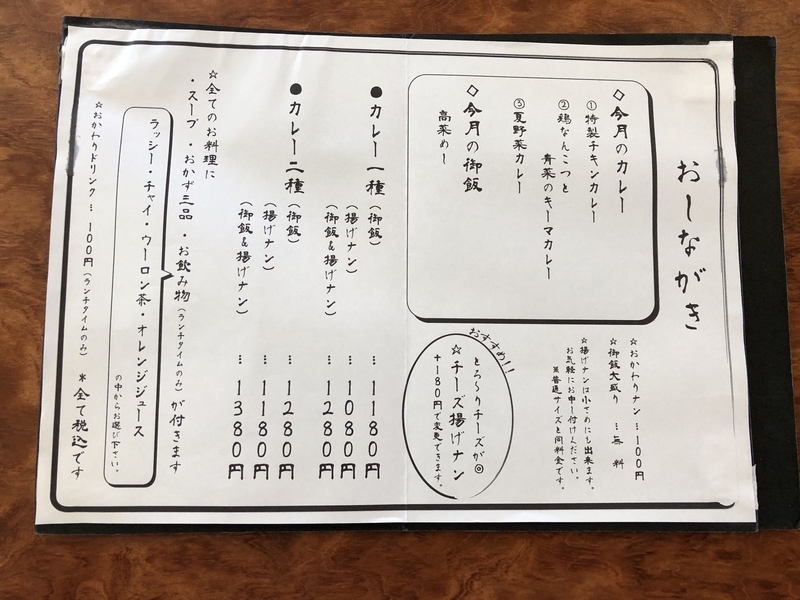 おしながき
◇今月のカレー
①特製チキンカレー
②鶏なんこつと
青菜のキーマカレー
③夏野菜カレー
◇今月の御飯
高菜めし
☆おかわりナン…100円
☆御飯大盛り…無料
☆揚げナンは小さめにも出来ます。
お気軽にお申し付けください。
※普通サイズと同料金です。
おすすめ!!
とろ〜りチーズが◎
☆チーズ揚げナン
+180円で変更できます。
●カレー一種(御飯)…1180円
(揚げナン)…1080円
(御飯&揚げナン)…1280円
●カレー二種(御飯)…1280円
(揚げナン)…1180円
(御飯&揚げナン)…1380円
☆全てのお料理に
・スープ・おかず三品・お飲み物(ランチタイムのみ)が付きます
ラッシー・チャイ・ウーロン茶・オレンジジュース
の中からお選び下さい。
☆おかわりドリンク…100円(ランチタイムのみ) *全て税込です